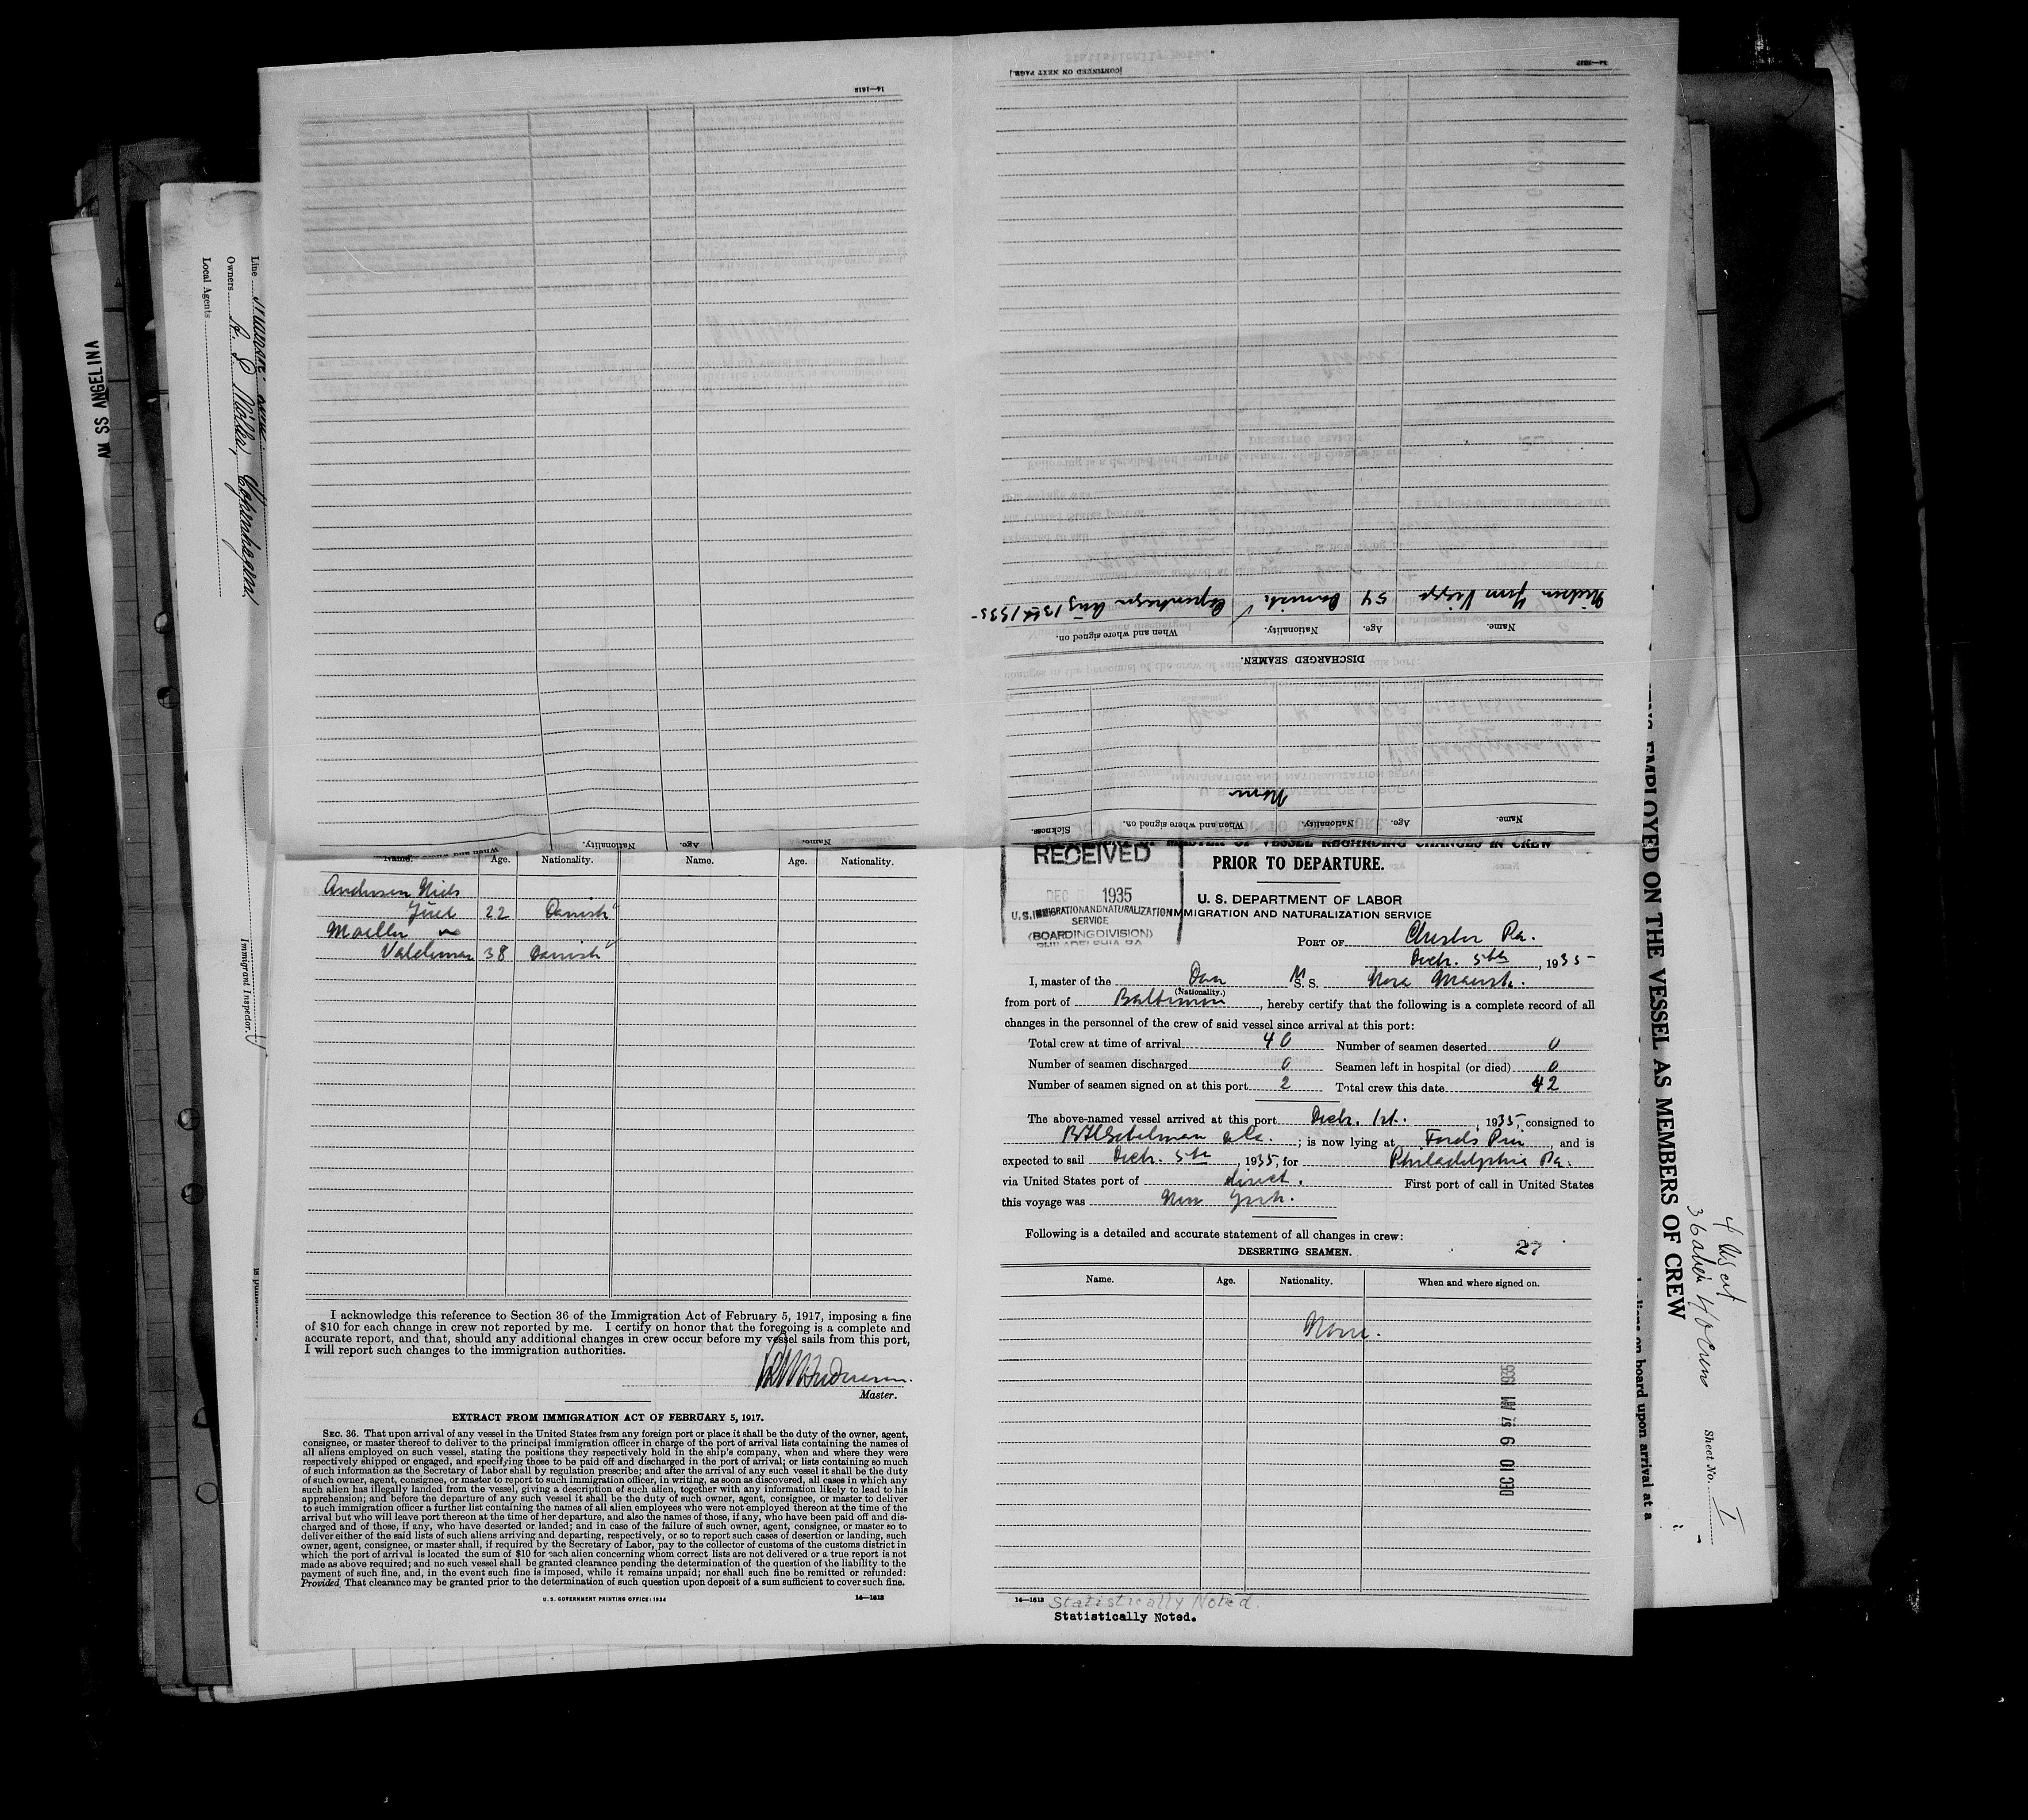 AM SS ANGELINA
Line
Owners
Copenhagen
Local Agents
Immigrant Inspector.
14—1613
[CONTINUED ON NEXT PAGE]
14—1613
Nielsen Jens Viggo 54 Danish Copenhagen Aug 13th 1935
Name. Age. Nationality. When and where signed on.
DISCHARGED SEAMEN.
None
Name. Age. Nationality. When and where signed on. Sickness.
Name. Age. Nationality. When and where
Name. Age. Nationality. Name. Age. Nationality.
Andersen Niels
Juel 22 Danish
Moeller
Valdemar 38 Danish
I acknowledge this reference to Section 36 of the Immigration Act of February 5, 1917, imposing a fine
of $10 for each change in crew not reported by me. I certify on honor that the foregoing is a complete and
accurate report, and that, should any additional changes in crew occur before my vessel sails from this port,
I will report such changes to the immigration authorities.
Master.
EXTRACT FROM IMMIGRATION ACT OF FEBRUARY 5, 1917.
SEC. 36. That upon arrival of any vessel in the United States from any foreign port or place it shall be the duty of the owner, agent,
consignee, or master thereof to deliver to the principal immigration officer in charge of the port of arrival lists containing the names of
all aliens employed on such vessel, stating the positions they respectively hold in the ship's company, when and where they were
respectively shipped or engaged, and specifying those to be paid off and discharged in the port of arrival; or lists containing so much
of such information as the Secretary of Labor shall by regulation prescribe; and after the arrival of any such vessel it shall be the duty
of such owner, agent, consignee, or master to report to such immigration officer, in writing, as soon as discovered, all cases in which any
such alien has illegally landed from the vessel, giving a description of such alien, together with any information likely to lead to his
apprehension; and before the departure of any such vessel it shall be the duty of such owner, agent, consignee, or master to deliver
to such immigration officer a further list containing the names of all alien employees who were not employed thereon at the time of the
arrival but who will leave port thereon at the time of her departure, and also the names of those, if any, who have been paid off and dis-
charged and of those, if any, who have deserted or landed; and in case of the failure of such owner, agent, consignee, or master so to
deliver either of the said lists of such aliens arriving and departing, respectively, or so to report such cases of desertion or landing, such
owner, agent, consignee, or master shall, if required by the Secretary of Labor, pay to the collector of customs of the customs district in
which the port of arrival is located the sum of $10 for each alien concerning whom correct lists are not delivered or a true report is not
made as above required; and no such vessel shall be granted clearance pending the determination of the question of the liability to the
payment of such fine, and, in the event such fine is imposed, while it remains unpaid; nor shall such fine be remitted or refunded:
Provided, That clearance may be granted prior to the determination of such question upon deposit of a sum sufficient to cover such fine.
U. S. GOVERNMENT PRINTING OFFICE: 1934
14—1613
OF MASTER OF VESSEL REGARDING CHANGES IN CREW
PRIOR TO DEPARTURE.
RECEIVED
DEC 1935
U. S. IMMIGRATION AND NATURALIZATION
SERVICE
(BOARDING DIVISION)
PHILADELPHIA PA
U. S. DEPARTMENT OF LABOR
IMMIGRATION AND NATURALIZATION SERVICE
PORT OF Chester Pa.
Decb. 5th, 1935
I, master of the Dan M S. S. Nora Maersk.
(Nationality.)
from port of Baltimore, hereby certify that the following is a complete record of all
changes in the personnel of the crew of said vessel since arrival at this port:
Total crew at time of arrival 40 Number of seamen deserted 0
Number of seamen discharged 0 Seamen left in hospital (or died) 0
Number of seamen signed on at this port 2 Total crew this date 42
The above-named vessel arrived at this port Decb. 1st., 1935, consigned to
B H Sobelman & Co. ; is now lying at Fords Pier, and is
expected to sail Decb. 5th, 1935, for Philadelphia Pa.
via United States port of direct. First port of call in United States
this voyage was New York.
Following is a detailed and accurate statement of all changes in crew:
DESERTING SEAMEN. 27
Name. Age. Nationality. When and where signed on.
None.
DEC 10 9 57 AM 1935
14—1613 Statistically Noted.
Statistically Noted.
EMPLOYED ON THE VESSEL AS MEMBERS OF CREW
on board upon arrival at a
4 US cit
36 alien 40 crew
Sheet No. I